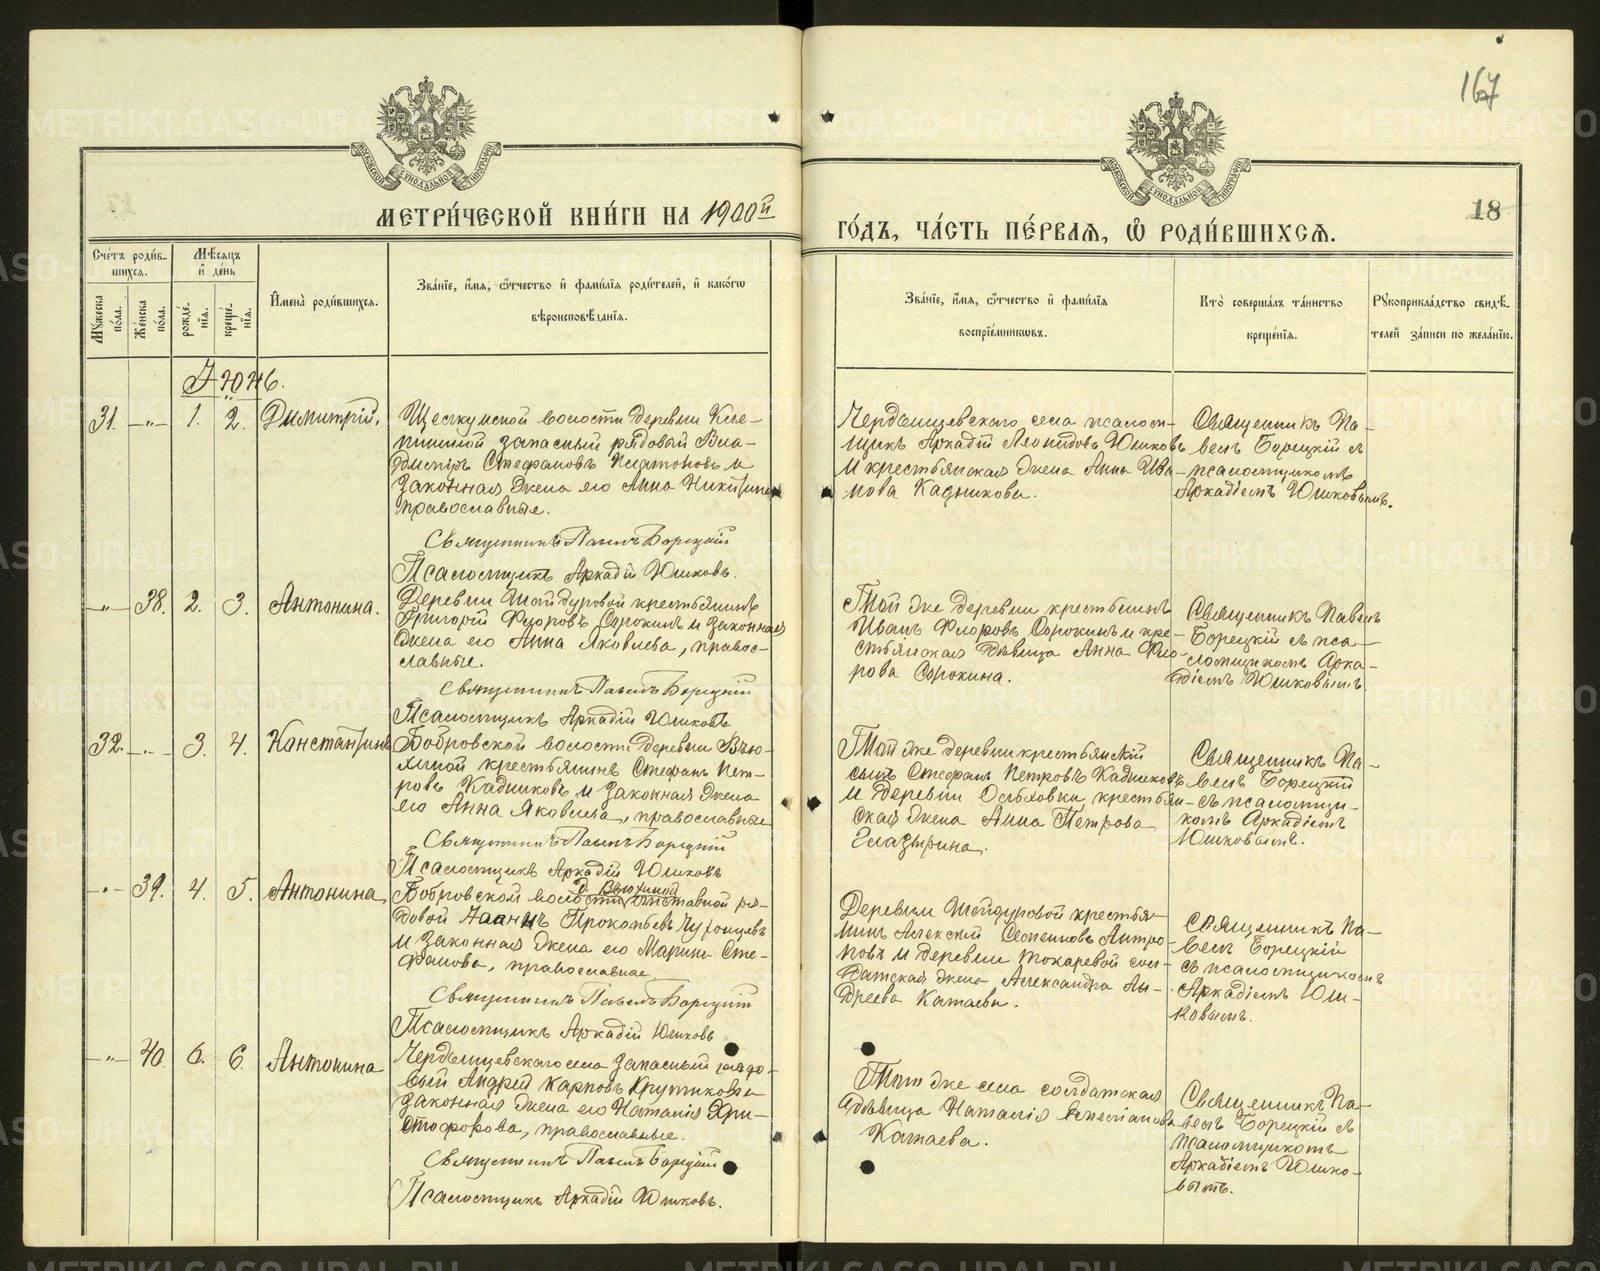 167
18
МЕТРИ́ЧЕСКОЙ КНИ́ГИ НА 1900й
ГО́ДЪ, ЧА́СТЬ ПЕ́РВАѦ, Ѡ҆ РОДИ́ВШИХСѦ.
Сче́тъ роди́в-
шихсѧ.
Мѣ́сѧцъ
и҆ де́нь
Мꙋ́жеска по́ла.
Же́нска по́ла.
рожде́-нїѧ.
креще́-нїѧ.
И҆мена̀ роди́вшихсѧ.
Зва́нїе, и҆́мѧ, ѻ҆́тчество и҆ фами́лїѧ роди́телей, и҆ како́гѡ
вѣроисповѣ́данїѧ.
Зва́нїе, и҆́мѧ, ѻ҆́тчество и҆ фами́лїѧ
воспрїе́мникѡвъ.
Кто̀ соверша́лъ та́инство
креще́нїѧ.
Рꙋкоприкла́дство свидѣ́-
телей за́писи по жела́нїю.
Іюнь.
31. -"- 1. 2. Димитрій.
волости деревни
запасный рядовый Вла-
димiръ Стефановъ Платоновъ и
законная жена его Анна Никитина
православные.
Священникъ Павелъ Борецкій
Псаломщикъ Аркадій Юшковъ.
Чердынцевскаго села псалом-
щикъ Аркадій Леонидовъ Юшковъ
и крестьянская жена Анна Ива-
нова Кадникова.
Священникъ Па-
велъ Борецкій съ
псаломщикомъ
Аркадіемъ Юшковымъ.
-"- 38. 2. 3. Антонина.
Деревни Шайдуровой крестьянинъ
Григорій Флоровъ Сорокинъ и законная
жена его Анна Яковлева, правос-
славные.
Священникъ Павелъ Борецкій
Псаломщикъ Аркадій Юшковъ
Той же деревни крестьянинъ
Иванъ Флоровъ Сорокинъ и кре-
стьянская дѣвица Анна Фло-
рова Сорокина.
Священникъ Павелъ
Борецкій съ пса-
ломщикомъ Арка-
діемъ Юшковымъ.
32. -"- 3. 4. Константинъ
Бобровской волости деревни Вью-
хиной крестьянинъ Стефанъ Пет-
ровъ Кадниковъ и законная жена
его Анна Яковлева, православные
Священникъ Павелъ Борецкій
Псаломщикъ Аркадій Юшковъ
Той же деревни крестьянскій
сынъ Стефанъ Петровъ Кадниковъ
и деревни Ольховки крестьян-
ская жена Анна Петрова
Глазырина.
Священникъ Па-
велъ Борецкій
съ псаломщи-
комъ Аркадіемъ
Юшковымъ.
-"- 39. 4. 5. Антонина,
д. Вьюхиной
Бобровской волости отставной ря-
довой Іоаннъ Прокопьевъ
и законная жена его Марина Сте-
фанова, православные
Священникъ Павелъ Борецкій
Псаломщикъ Аркадій Юшковъ
Деревни Шайдуровой крестья-
нинъ Алексій Семеновъ Антро-
повъ и деревни Токаревой сол-
датская жена Александра Ан-
дреева Катаева.
Священникъ Па-
велъ Борецкій
съ псаломщикомъ
Аркадіемъ Юш-
ковымъ.
-"- 40. 6. 6. Антонина
Чердынцевскаго села запасный рядо-
вый Андрей Карповъ Крутиковъ и
законная жена его Наталія Хри-
стофорова, православные.
Священникъ Павелъ Борецкій
Псаломщикъ Аркадій Юшковъ.
Того же села солдатская
дѣвица Наталія
Катаева.
Священникъ Па-
велъ Борецкій съ
псаломщикомъ
Аркадіемъ Юшко-
вымъ.